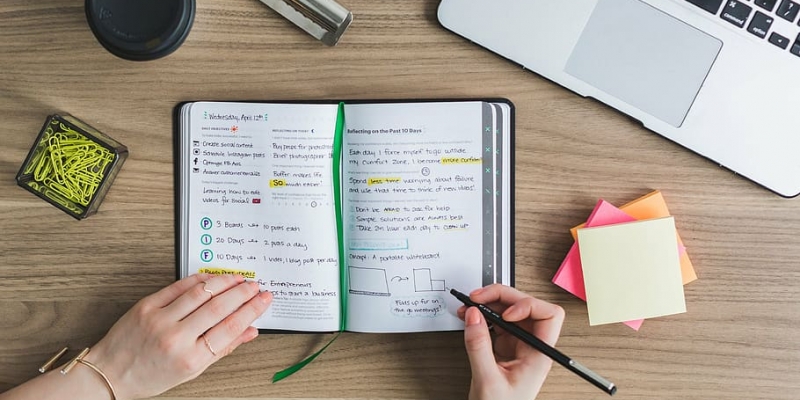 Wednesday, April 12th
DAILY OBJECTIVES
Create social content
Schedule Instagram posts
Optimize FB Ads
Answer customer emails
Learning how to edit
videos for social
P 3 Boards → 10 pins each
I 20 Days → 2 posts a day
F 10 Days → 1 video, 1 blog post per day
Blog Post Ideas
for Entrepreneurs
to start a business
REFLECTING ON TODAY
Buy props for
Brief photographer
Buffer makes life
SO much easier!
Reflecting on the Past 10 Days
Each day I force myself to go outside
my comfort zone, I become more confident
Spend less time worrying about failure
and use that time to think of new ideas!
Don't be afraid to ask for help
Simple solutions are always best
Take 2h hour each day to clean up
Concept: A portable whiteboard
Folds up for on
the go meetings!
command